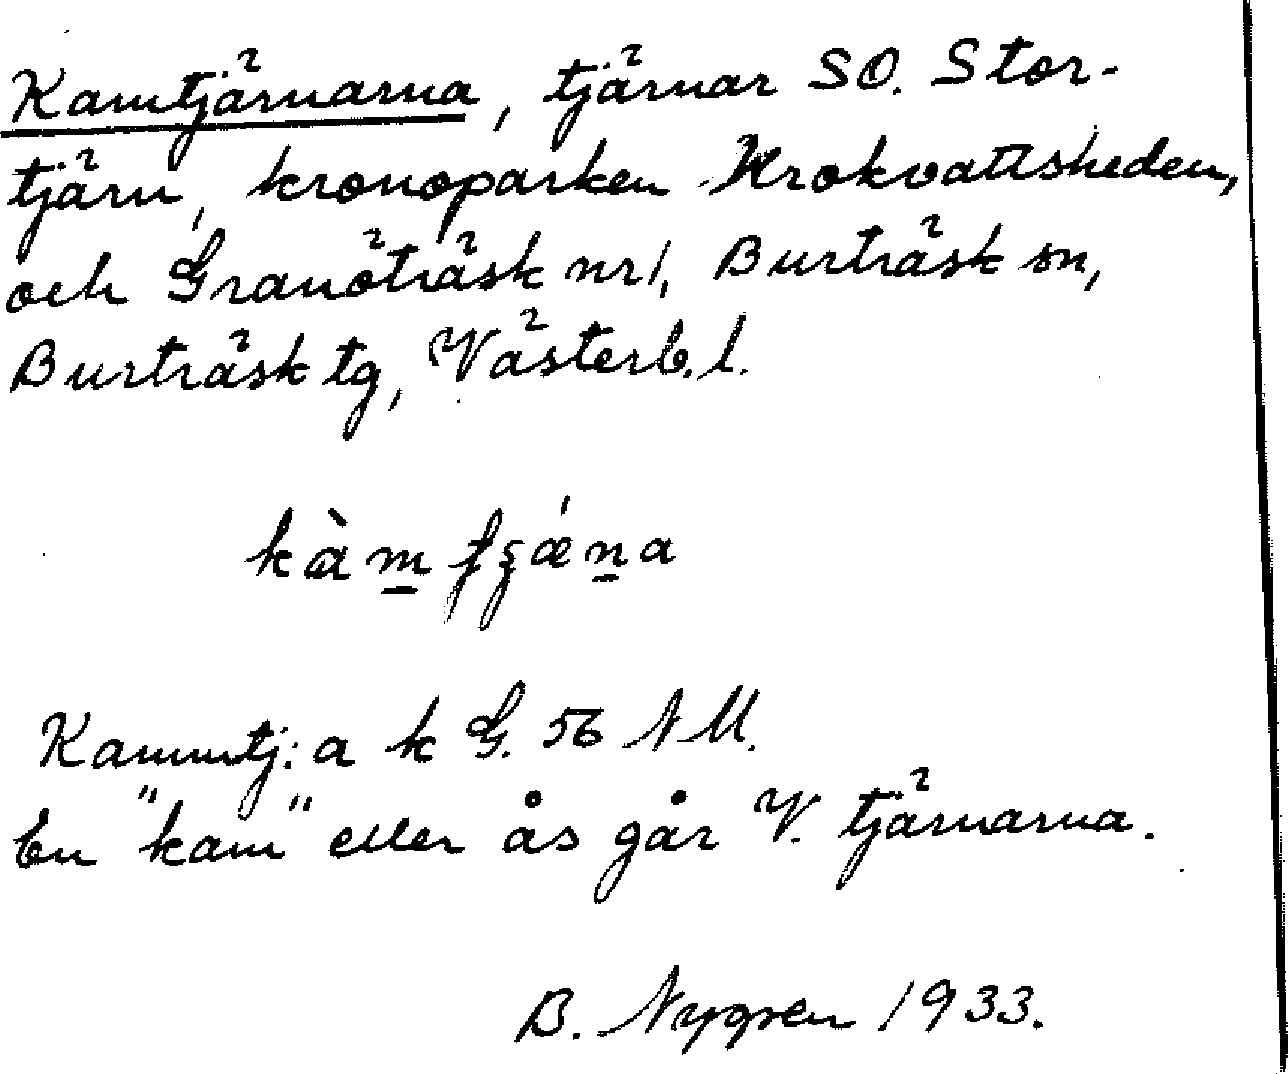 Kamtjärnarna, tjärnar SO. Stor-
tjärn, kronoparken Krokvattsheden,
och Granöträsk nr 1, Burträsk sn,
Burträsk tg, Västerb. l.
kàm̲ tʒǽn̲a
Kammtj:a k G. 56 NM.
En "kam" eller ås går V. tjärnarna.
B. Nygren 1933.